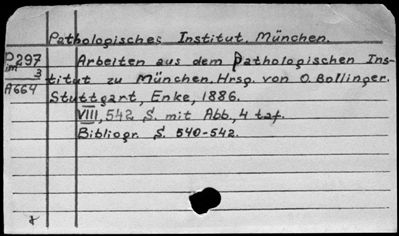 Pathologisches Institut, München.
P297 Arbeiten aus dem Pathologischen Ins-
im 3 titut zu München. Hrsg. von O. Bollinger.
A664 Stuttgart, Enke, 1886.
VIII, 542 S. mit Abb., 4 taf.
Bibliogr. S. 540-542.